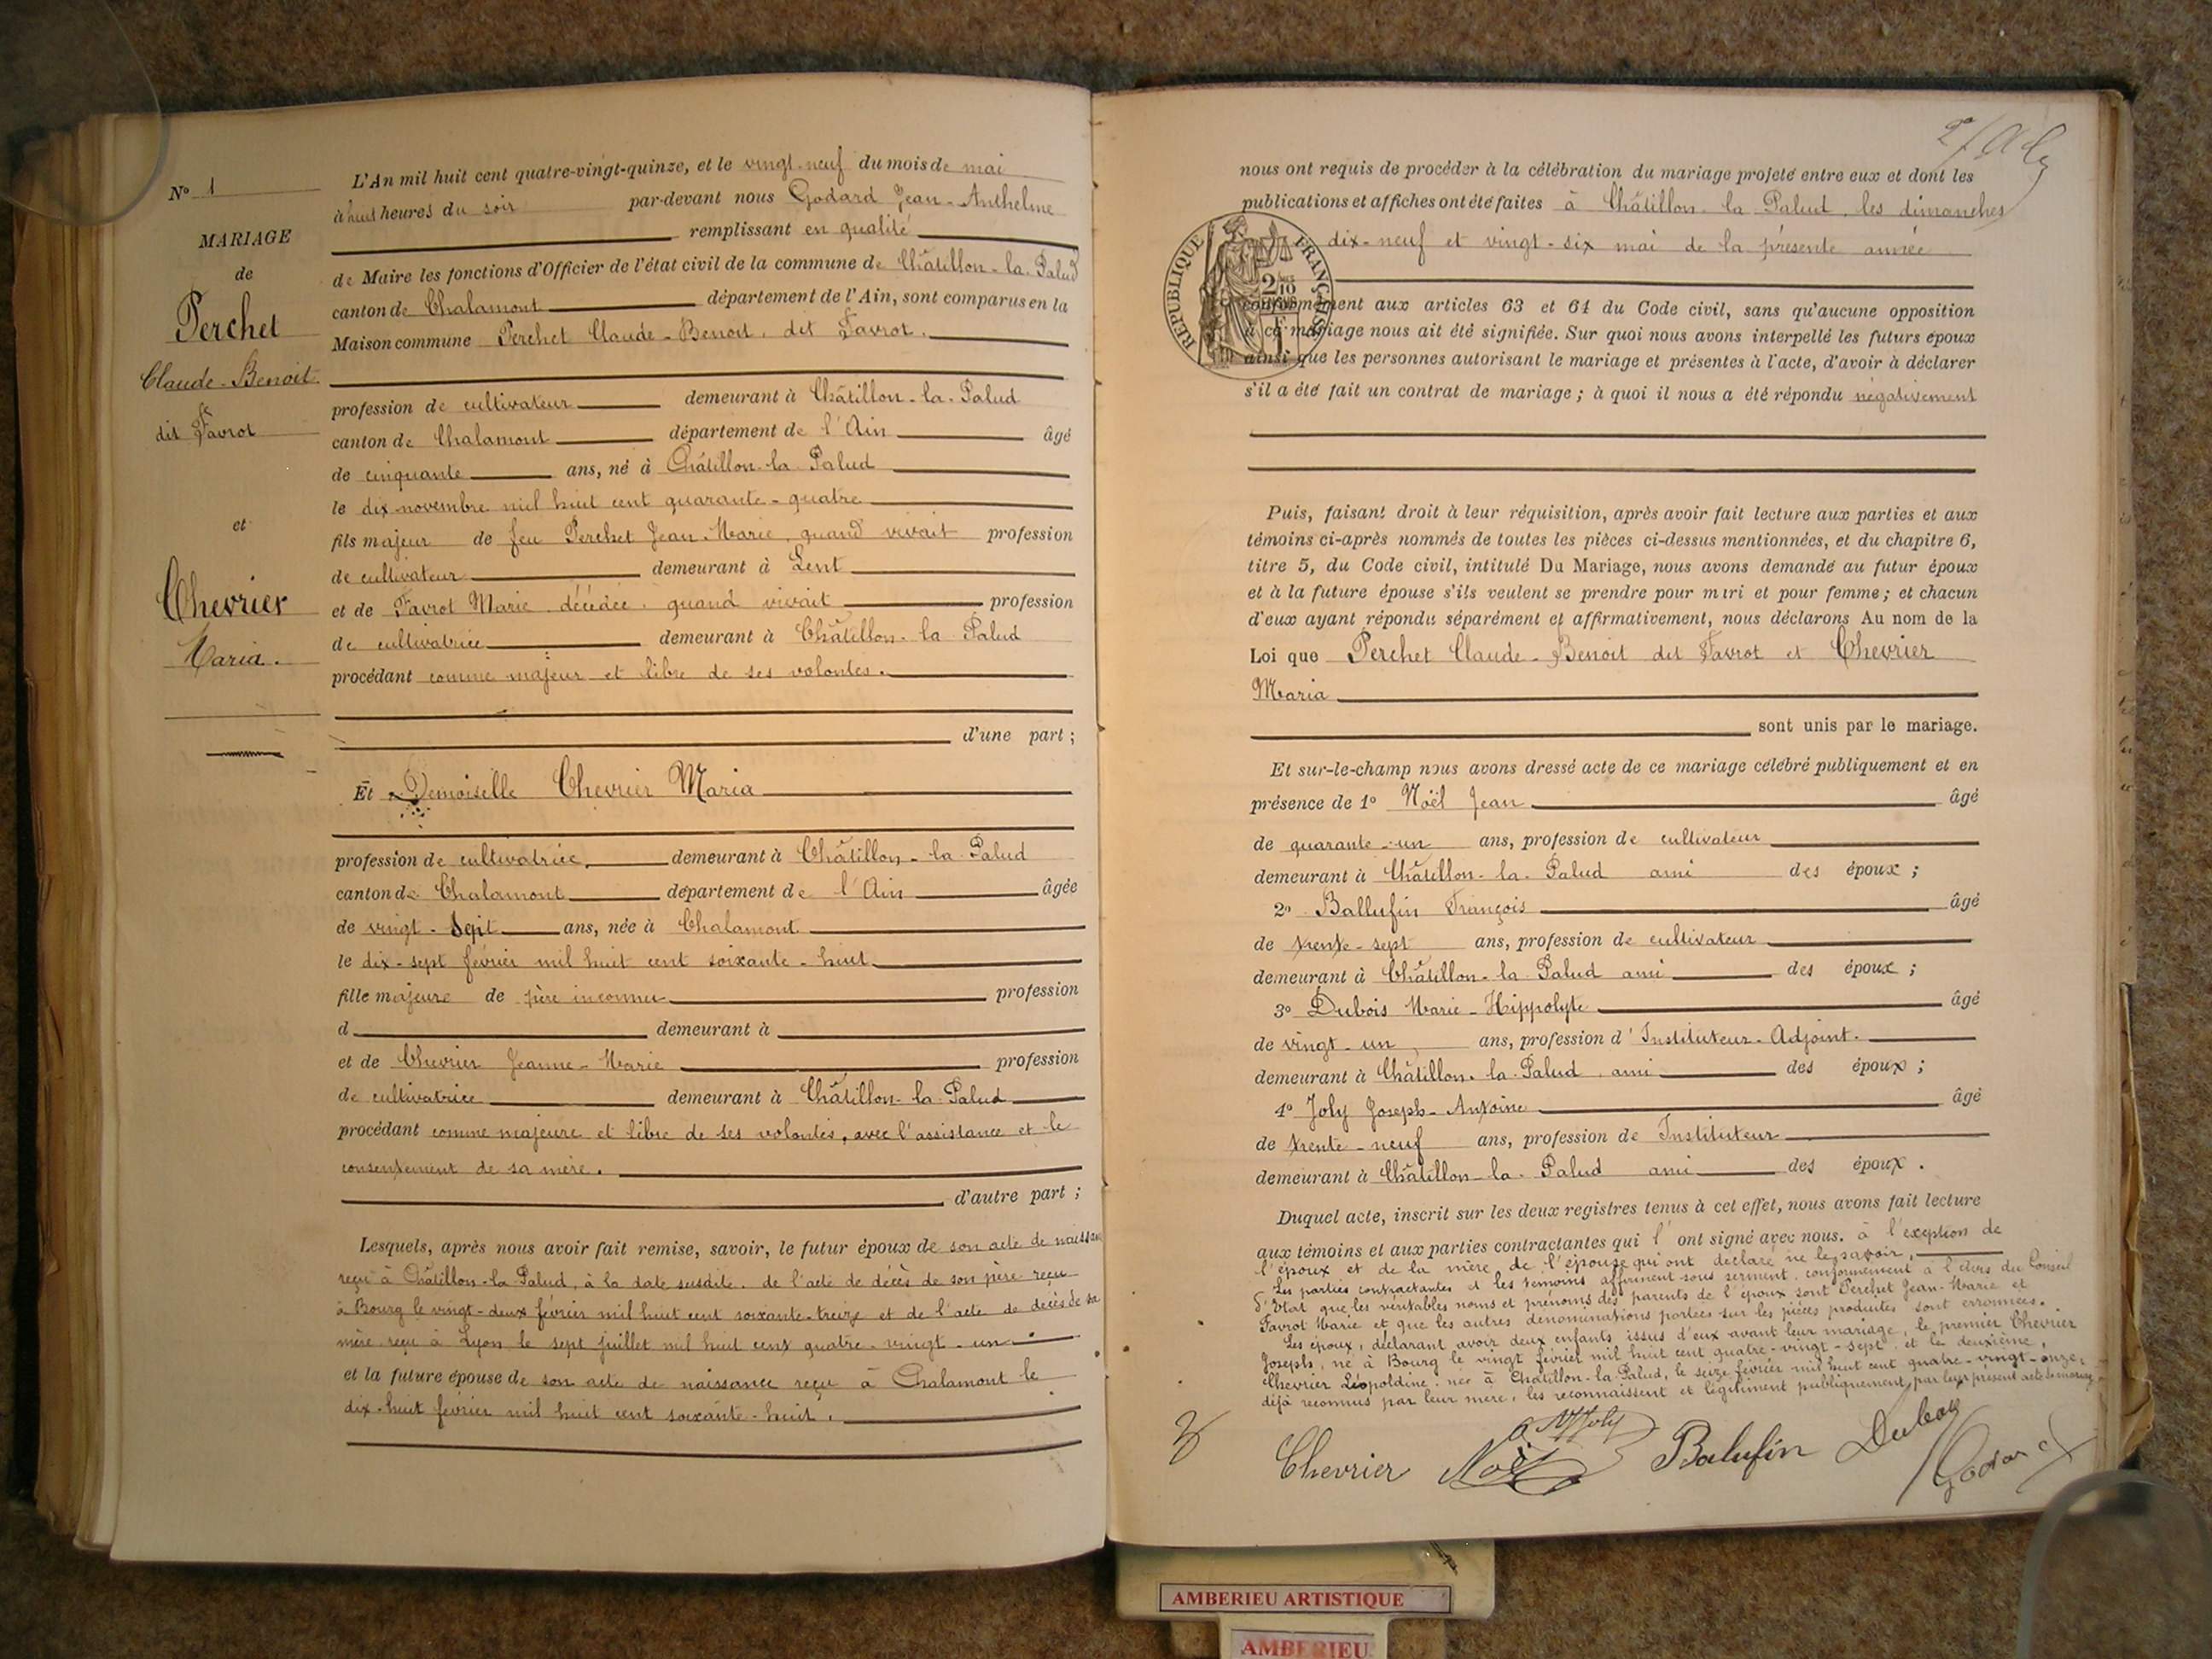 N° 1
MARIAGE
de
Perchet
Claude-Benoit
dit Favrot
et
Chevrier
Maria.
L'An mil huit cent quatre-vingt-quinze, et le vingt-neuf du mois de mai
à huit heures du soir par-devant nous Godard Jean-Anthelme
remplissant en qualité
de Maire les fonctions d'Officier de l'état civil de la commune de Châtillon-la-Palud
canton de Chalamont département de l'Ain, sont comparus en la
Maison commune Perchet Claude-Benoit, dit Favrot.
profession de cultivateur demeurant à Châtillon-la-Palud
canton de Chalamont département de l'Ain âgé
de cinquante ans, né à Châtillon-la-Palud
le dix novembre mil huit cent quarante-quatre
fils majeur de feu Perchet Jean-Marie, quand vivait profession
de cultivateur demeurant à Lent
et de Favrot Marie, décédée, quand vivait profession
de cultivatrice demeurant à Châtillon-la-Palud
procédant comme majeur et libre de ses volontés.
d'une part ;
Et Demoiselle Chevrier Maria
profession de cultivatrice, demeurant à Châtillon-la-Palud
canton de Chalamont département de l'Ain âgée
de vingt-sept ans, née à Chalamont
le dix-sept février mil huit cent soixante-huit
fille majeure de père inconnu profession
d demeurant à
et de Chevrier Jeanne-Marie profession
de cultivatrice demeurant à Châtillon-la-Palud
procédant comme majeure et libre de ses volontés, avec l'assistance et le
consentement de sa mère.
d'autre part ;
Lesquels, après nous avoir fait remise, savoir, le futur époux de son acte de naissance
reçu à Châtillon-la-Palud, à la date susdite. de l'acte de décès de son père reçu
à Bourg le vingt-deux février mil huit cent soixante-treize et de l'acte de décès de sa
mère reçu à Lyon le sept juillet mil huit cent quatre-vingt-un
et la future épouse de son acte de naissance reçu à Chalamont le
dix-huit février mil huit cent soixante-huit.
nous ont requis de procéder à la célébration du mariage projeté entre eux et dont les
publications et affiches ont été faites à Châtillon-la-Palud, les dimanches
dix-neuf et vingt-six mai de la présente année
REPUBLIQUE FRANÇAISE
conformément aux articles 63 et 64 du Code civil, sans qu'aucune opposition
à ce mariage nous ait été signifiée. Sur quoi nous avons interpellé les futurs époux
ainsi que les personnes autorisant le mariage et présentes à l'acte, d'avoir à déclarer
s'il a été fait un contrat de mariage ; à quoi il nous a été répondu négativement
Puis, faisant droit à leur réquisition, après avoir fait lecture aux parties et aux
témoins ci-après nommés de toutes les pièces ci-dessus mentionnées, et du chapitre 6,
titre 5, du Code civil, intitulé Du Mariage, nous avons demandé au futur époux
et à la future épouse s'ils veulent se prendre pour mari et pour femme ; et chacun
d'eux ayant répondu séparément et affirmativement, nous déclarons Au nom de la
Loi que Perchet Claude-Benoit dit Favrot et Chevrier
Maria
sont unis par le mariage.
Et sur-le-champ nous avons dressé acte de ce mariage célébré publiquement et en
présence de 1° Noël Jean âgé
de quarante-un ans, profession de cultivateur
demeurant à Châtillon-la-Palud ami des époux ;
2° Ballufin François âgé
de trente-sept ans, profession de cultivateur
demeurant à Châtillon-la-Palud ami des époux ;
3° Dubois Marie-Hippolyte âgé
de vingt-un ans, profession d'Instituteur-Adjoint.
demeurant à Châtillon-la-Palud ami des époux ;
4° Joly Joseph-Antoine âgé
de trente-neuf ans, profession de Instituteur
demeurant à Châtillon-la-Palud ami des époux.
Duquel acte, inscrit sur les deux registres tenus à cet effet, nous avons fait lecture
aux témoins et aux parties contractantes qui l'ont signé avec nous. à l'exception de
l'époux et de la mère de l'épouse qui ont déclaré ne le savoir.
Les parties contractantes et les témoins affirment sous serment, conformément à l'avis du Conseil
d'Etat que les véritables noms et prénoms des parents de l'époux sont Perchet Jean-Marie et
Favrot Marie et que les autres dénominations portées sur les pièces produites sont erronées.
Les époux, déclarant avoir deux enfants issus d'eux avant leur mariage, le premier Chevrier
Joseph, né à Bourg le vingt février mil huit cent quatre-vingt-sept, et le deuxième,
Chevrier Léopoldine, née à Châtillon-la-Palud, le seize février mil huit cent quatre-vingt-onze,
déjà reconnus par leur mère, les reconnaissent et légitiment publiquement par leur présent acte de mariage
Chevrier Noël Joly Balufin Dubois Godard
AMBERIEU ARTISTIQUE
AMBERIEU